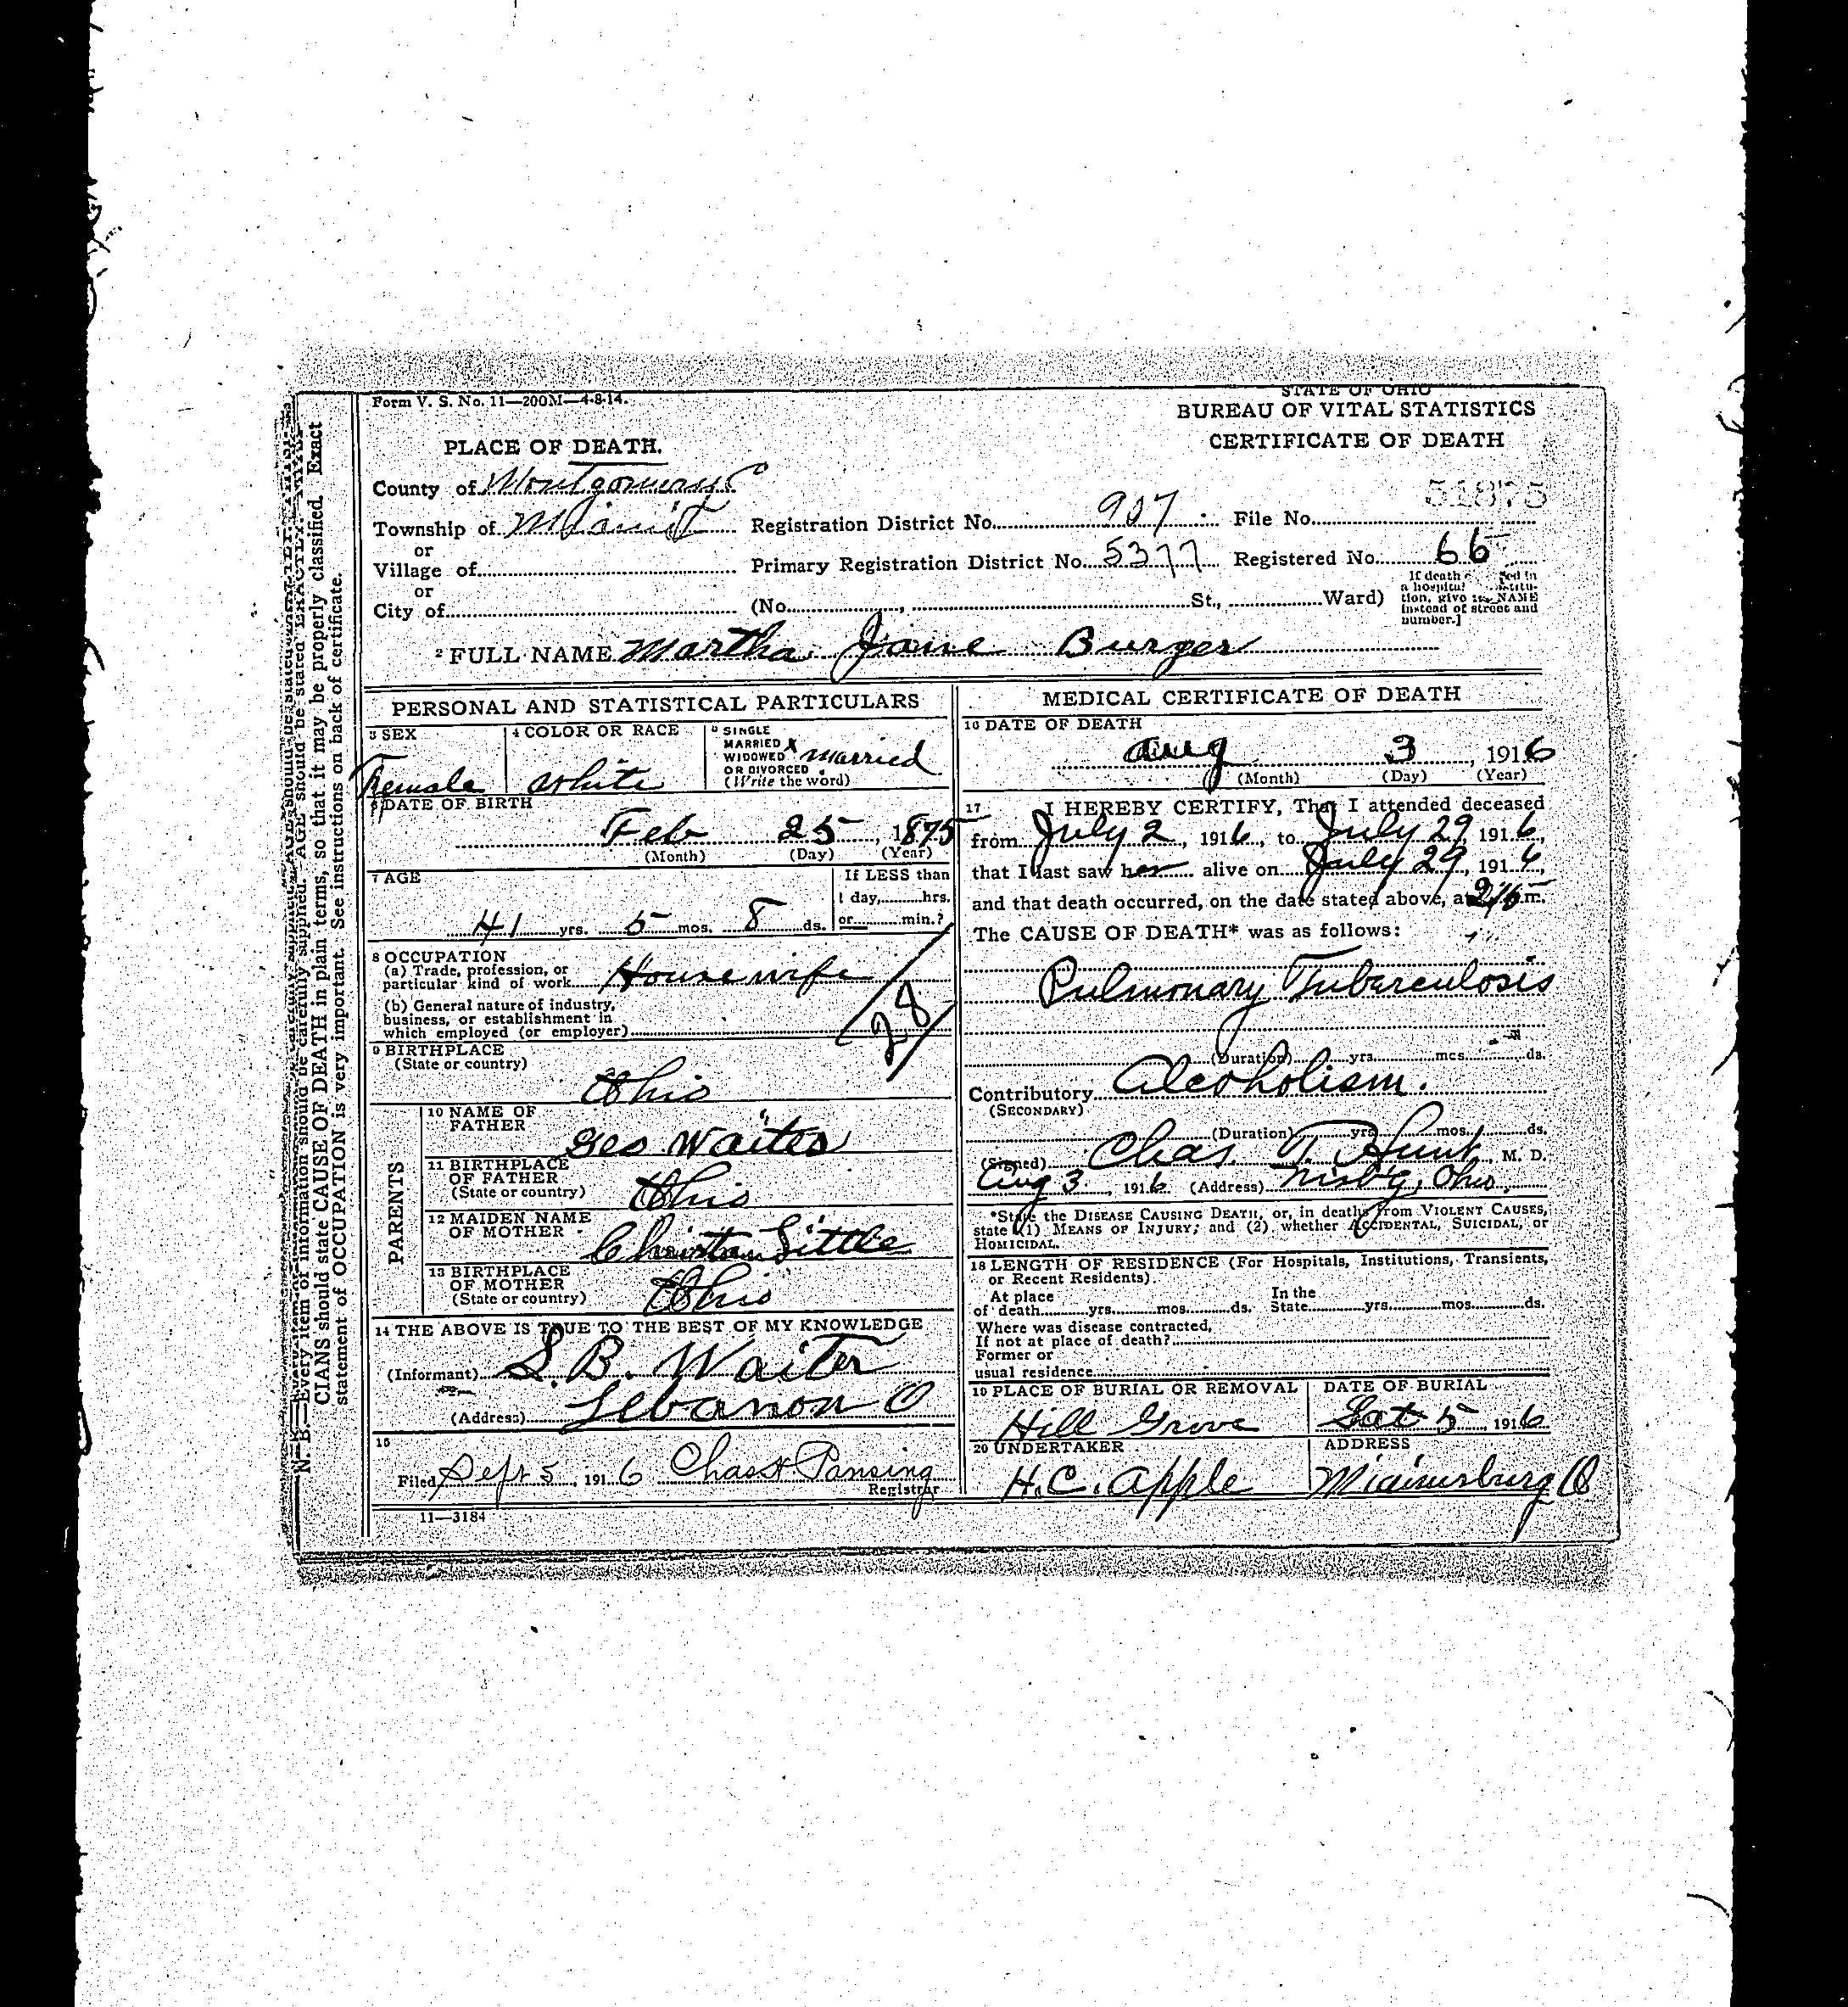 Form V. S. No. 11—200M—4-8-14.
STATE OF OHIO
BUREAU OF VITAL STATISTICS
CERTIFICATE OF DEATH
PLACE OF DEATH.
County of Montgomery
Township of Miami
or
Village of
or
City of
Registration District No. 907
File No. 51875
Primary Registration District No. 5377
Registered No. 66
(No. , St., Ward)
If death
a hospital
tion, give its NAME
instead of street and
number.]
2 FULL NAME Martha Jane Burger
PERSONAL AND STATISTICAL PARTICULARS
3 SEX
Female
4 COLOR OR RACE
White
5 SINGLE
MARRIED X
WIDOWED
OR DIVORCED
(Write the word)
Married
6 DATE OF BIRTH
Feb 25, 1875
(Month) (Day) (Year)
7 AGE
41 yrs. 5 mos. 8 ds.
If LESS than
1 day, hrs.
or min.?
8 OCCUPATION
(a) Trade, profession, or
particular kind of work Housewife
(b) General nature of industry,
business, or establishment in
which employed (or employer)
28
9 BIRTHPLACE
(State or country)
Ohio
PARENTS
10 NAME OF
FATHER
Geo Waites
11 BIRTHPLACE
OF FATHER
(State or country) Ohio
12 MAIDEN NAME
OF MOTHER
Little
13 BIRTHPLACE
OF MOTHER
(State or country) Ohio
14 THE ABOVE IS TRUE TO THE BEST OF MY KNOWLEDGE
(Informant) S. B. Waiter
(Address) Lebanon O
15
Filed Sept 5, 1916 Chas H Pansing
Registrar
11—3184
MEDICAL CERTIFICATE OF DEATH
16 DATE OF DEATH
Aug 3, 1916
(Month) (Day) (Year)
17 I HEREBY CERTIFY, That I attended deceased
from July 2, 1916, to July 29 1916,
that I last saw her alive on July 29, 1916,
and that death occurred, on the date stated above, at m.
The CAUSE OF DEATH* was as follows:
Pulmonary Tuberculosis
(Duration) yrs. mos. ds.
Contributory Alcoholism.
(SECONDARY)
(Duration) yrs. mos. ds.
(Signed) Chas. T. Hunt, M. D.
Aug 3, 1916 (Address) Ohio.
*State the DISEASE CAUSING DEATH, or, in deaths from VIOLENT CAUSES,
state (1) MEANS OF INJURY; and (2) whether ACCIDENTAL, SUICIDAL, or
HOMICIDAL.
18 LENGTH OF RESIDENCE (For Hospitals, Institutions, Transients,
or Recent Residents).
At place
of death yrs. mos. ds.
In the
State yrs. mos. ds.
Where was disease contracted,
If not at place of death?
Former or
usual residence
19 PLACE OF BURIAL OR REMOVAL
Hill Grove
DATE OF BURIAL
5, 1916
20 UNDERTAKER
H. C. Apple
ADDRESS
Miamisburg O
N. B.—Every item of information should be carefully supplied. AGE should be stated EXACTLY.
CIANS should state CAUSE OF DEATH in plain terms, so that it may be properly classified. Exact
statement of OCCUPATION is very important. See instructions on back of certificate.